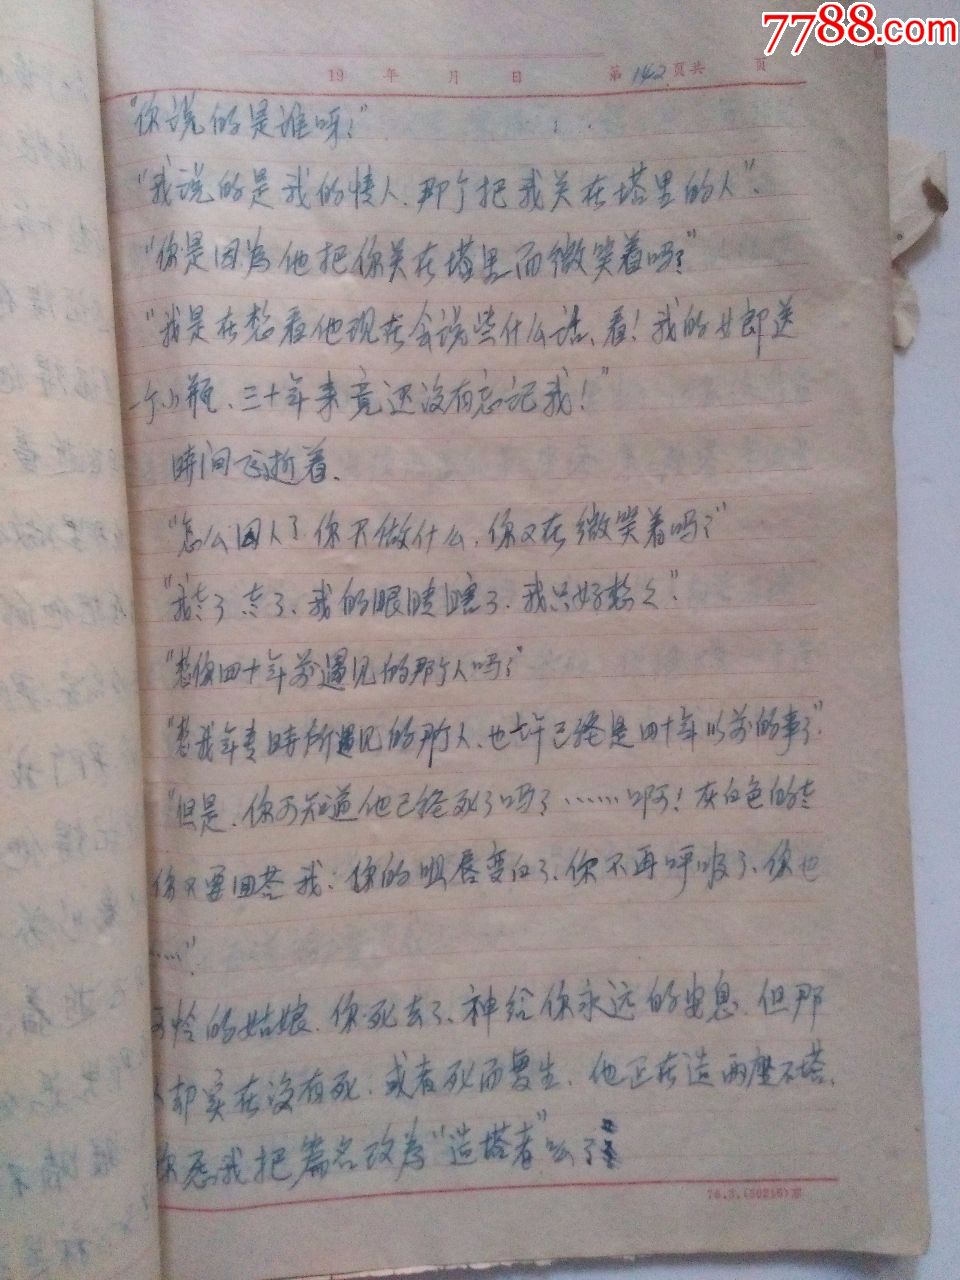 7788.com
19 年 月 日 第142页共 页
"你说的是谁呀?"
"我说的是我的情人、那个把我关在塔里的人"、
"你是因为他把你关在塔里而微笑着吗?"
"我是在想着他现在会说些什么话、看!我的女郎送
个小瓶、三十年来竟还没有忘记我!"
时间飞逝着、
"怎么 人?你不做什么、你又在微笑着吗?"
"我老了老了、我的眼睛瞎了、我只好想他"
"想你四十年前遇见的那个人吗?"
"想我年青时所遇见的那个人、也许已经是四十年以前的事了"
"但是、你可知道他已经死了吗?……啊!灰白色的老
你不要回答我:你的咀唇变白了、你不再呼吸了、你也
……"
可怜的姑娘、你死去了、神给你永远的安息、但那
人却实在没有死、或者死而复生、他正在造两座石塔、
你愿我把篇名改为"造塔者"么?
76.3.(50216)